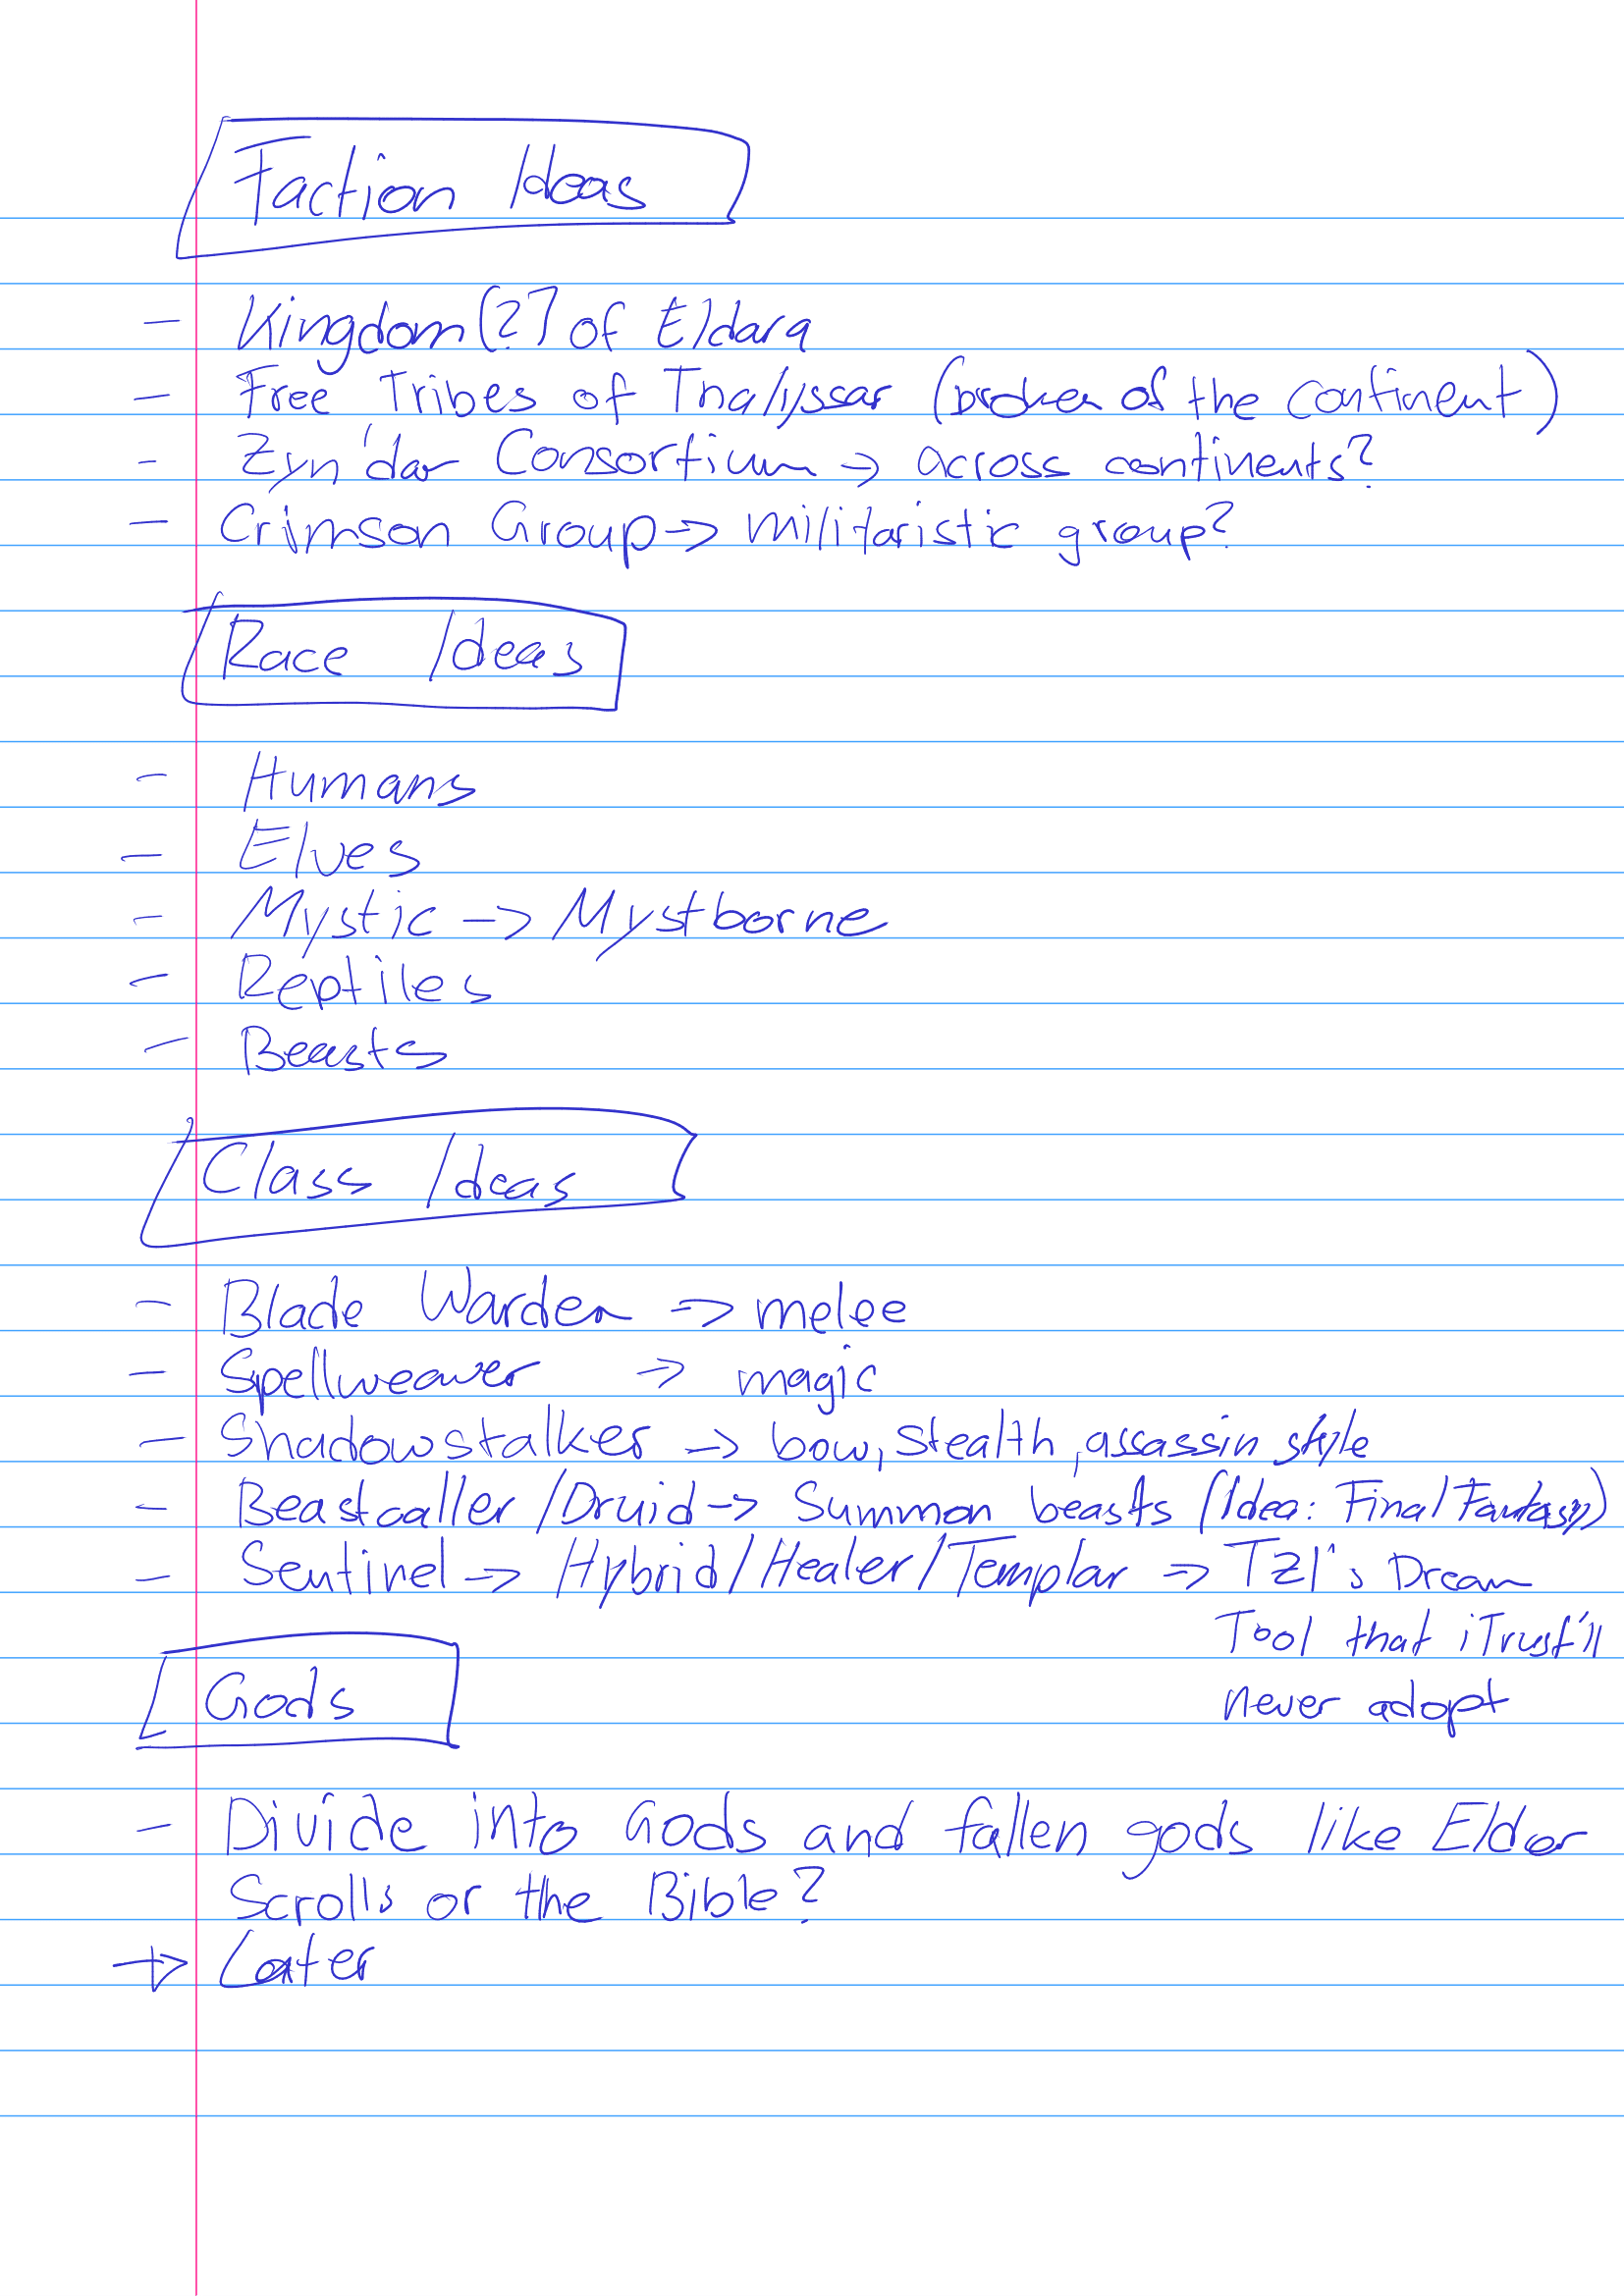 Faction Ideas
- Kingdom(?) of Eldara
- Free Tribes of Thalyssar (broken of the continent)
- Zyn'dar Consortium -> across continents?
- Crimson Group -> militaristic group?
Race Ideas
- Humans
- Elves
- Mystic -> Mystborne
- Reptiles
- Beasts
Class Ideas
- Blade Warden -> melee
- Spellweaver -> magic
- Shadowstalker -> bow, stealth, assassin style
- Beastcaller/Druid -> Summon beasts (Idea: Final Fantasy)
- Sentinel -> Hybrid/Healer/Templar -> TZI's Dream
Tool that iTrust'll
never adopt
Gods
- Divide into Gods and fallen gods like Elder
Scrolls or the Bible?
-> Later